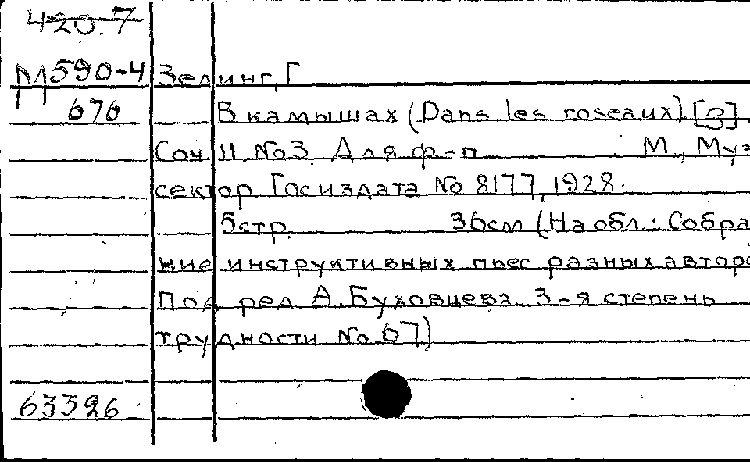 420.7
М590-4 Зелинг, Г
676 В камышах (Dans les roseaux). [3]
Соч 11 No3 Для ф-п М., Муз
сектор Госиздата No 8177, 1928.
5стр. 36см (На обл.: Собра
ние инструктивных пьес разных авторо
Под ред А. Буховцева. 3-я степень
трудности No 67)
63326